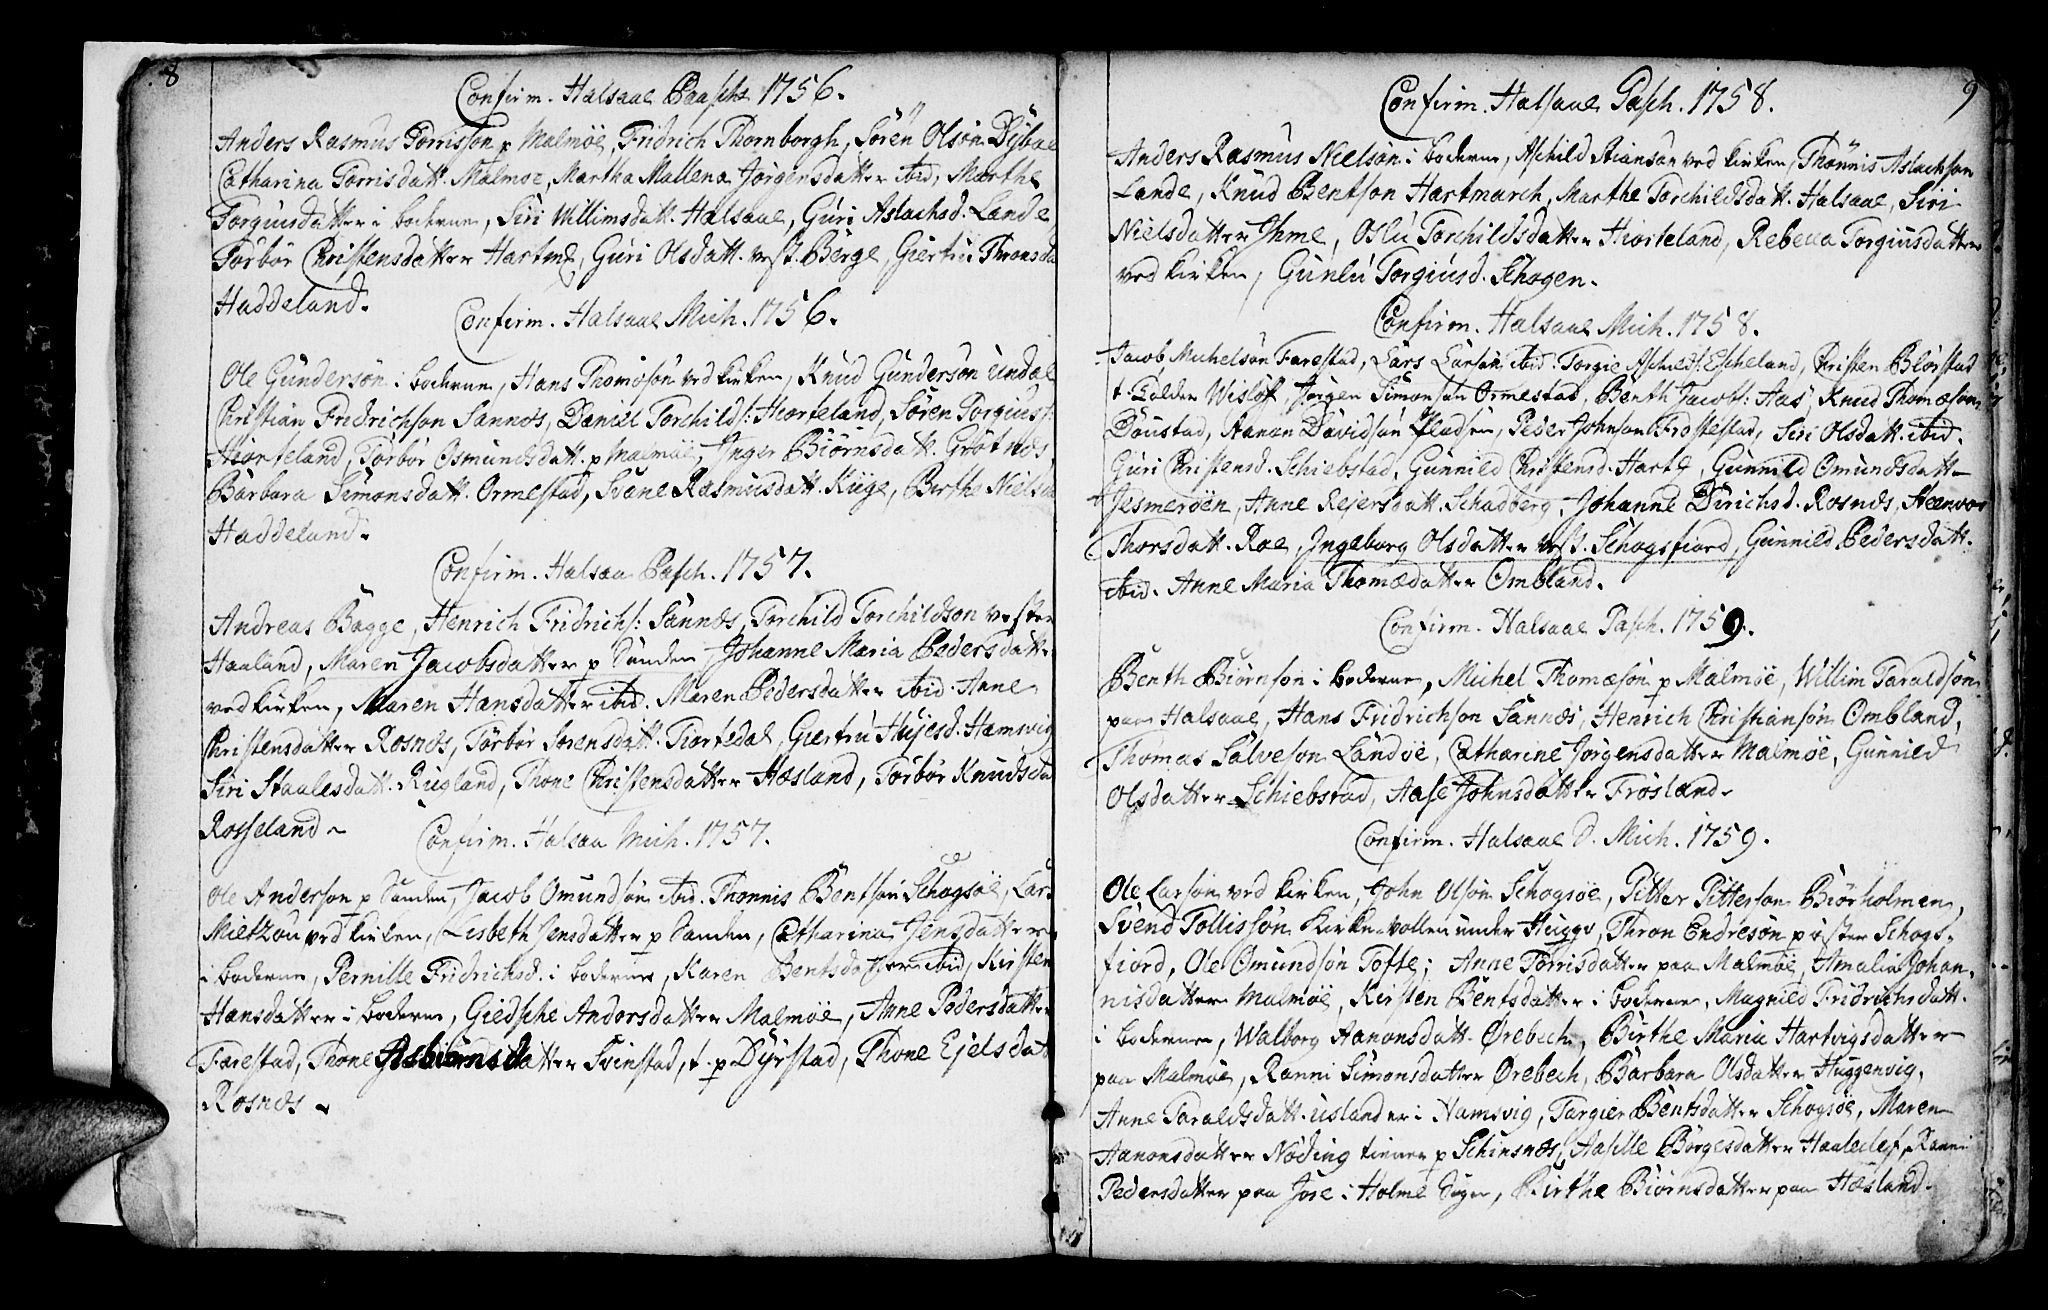 8
Confirm. Halsaae Paaschs 1756.
Anders Rasmus Torrisson p Malmöe, Fridrich Thornborgh, Sören Olsön Dÿbae
Catharina Torrisdatt. Malmöe, Martha Mallena Jörgensdatter ibid, Marthe
Torgiusdatter i boderne, Siri Willimsdatt. Halsaae, Guri Aslachsd. Lande
Torbör Christensdatter Hartmÿ, Guri Olsdatt. vest. Berge, Giertru Thronsda
Haddeland.
Confirm. Halsaae Mich. 1756.
Ole Gundersön i boderne, Hans Thomæsön ved kirken, Knud Gundersön Undal
Christian Fridrichson Sannæs, Daniel Torchilds: Hiorteland, Sören Torgius:
Hiorteland, Torbör Osmundsdatt. p Malmöe, Inger Biörnsdatt. Grötnæs,
Barbara Simonsdatt. Ormestad, Svane Rasmusdatt. Kuge, Berthe Niels
Haddeland.
Confirm. Halsaa Pasch. 1757.
Andreas Bagge, Henrich Fridrichs: Sannæs, Torchild Torchildson vester
Haaland, Maren Jacobsdatter p Sanden Johanne Maria Pedersdatt
ved kirken, Maren Hansdatter ibid. Maren Pedersdatter ibid. Anne
Christensdatter Rosnæs, Torbör Sorensdatt. Tiortedal, Giertru Hujesd. Hamsvig
Siri Staalesdatt. Rugland, Thone Christensdatter Hæsland, Torbör Knudsda
Rosseland
Confirm. Halsaa Mich. 1757.
Ole Anderson p Sanden, Jacob Omundsön ibid. Thonnis Bentsön Schogsöe, Lars
Mietzou ved kirken, Lisbeth Jensdatter p Sanden, Catharina Jensdatter
i boderne, Pernille Fridrichsd. i boderne, Karen Bentsdatter ibid, Kirsten
Hansdatter i boderne, Giedsche Andersdatter Malmöe, Anne Pedersdatter
Farestad, Thone Asbiörnsdatter Svinstad, t. p Dyrstad, Thone Ejelsdat
Rosnæs
9
Confirm. Halsaae Pasch. 1758.
Anders Rasmus Nielsön i boderne, Aschild Stiansön ved kirken, Thönnis Aslachson
Lande, Knud Bentson Hartmarch, Marthe Torchildsdatt. Halsaae, Siri
Nielsdatter Ihme, Oslu Torchildsdatter Hiorteland, Rebecca Torgiusdatter
ved kirken, Gunlu Torgiusd. Schogen.
Confirm. Halsaae Mich. 1758.
Jacob Michelsön Farestad, Lars Larsön ibid: Torgie Aschilds: Escheland, Christen Blörstad
t. Holden Wislöf, Jörgen Simonsön Ormestad, Benth Jacobs: Aas, Knud Thomæson
Doustad, Aanon Davidsön Pladsen, Peder Johnson Frostestad, Siri Olsdatt. ibid.
Guri Christensd. Schiebstad, Gunnild Christensd. Hartÿ, Gunnild Omundsdatt
Jesmeröen, Anne Rejersdatt. Schadberg, Johanne Dirichsd. Rosnæs, Heenvor
Thorsdatt. Roe, Ingeborg Olsdatter vest. Schogsfiord, Gunnild Pedersdatt.
ibid. Anne Maria Thomædatter Ombland.
Confirm. Halsaae Pasch. 1759.
Benth Biörnson i boderne, Michel Thomæsön p Malmöe, Willim Taraldsön
paa Halsaae, Hans Fridrichson Sannæs, Henrich Christiansön Ombland,
Thomas Salveson Landöe, Catharine Jörgensdatter Malmöe, Gunnild
Olsdatter Schiebstad, Aase Johnsdatter Frösland
Confirm. Halsaae D. Mich. 1759.
Ole Larsön ved kirken, John Olsön Schogsöe, Pitter Pitterson Biörholmen,
Svend Tollissön Kirkevollen under Huggv, Thron Endresön p öster Schogs-
fiord, Ole Omundsön Tofte; Anne Torrisdatter paa Malmöe, Amalia Johan-
nisdatter Malmöe, Kirsten Bentsdatter i boderne, Magnild Fridrichsdatt.
i boderne, Walborg Aanonsdatt. Ørebech, Birthe Maria Hartvigsdatter
paa Malmöe, Ranni Simonsdatter Ørebech, Barbara Olsdatter Huggenvig,
Anne Taraldsdatt. uslander i Hamsvig, Targier Bentsdatter Schogsöe, Maren
Aanonsdatter Nöding tienner p Schinsnæs, Aasille Börgesdatter Haaleclef, Ranni
Pedersdatter paa Jore i Holme Sogn, Birthe Biörnsdatter paa Hæsland.